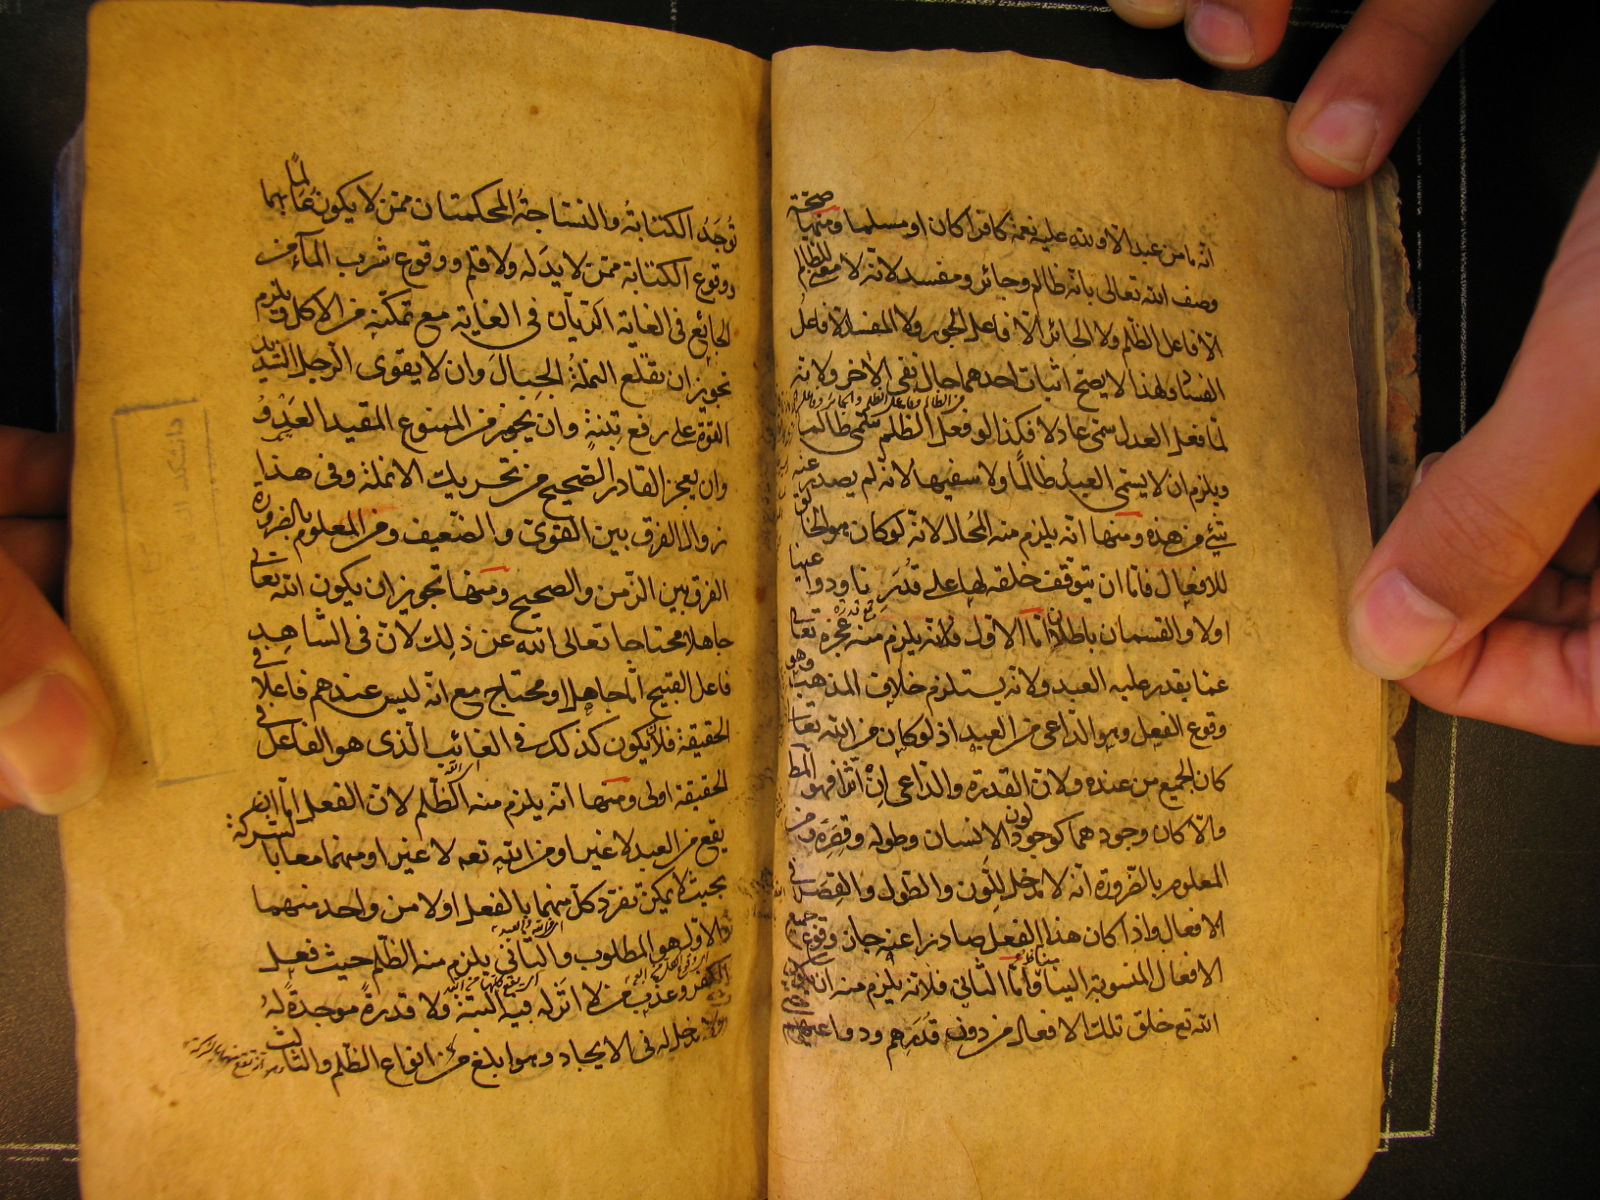 انه ما من عبد الا ولله عليه نعمة كافرا كان او مسلما ومنها صحة
وصف الله تعالى بانه ظالم وجائر ومفسد لانه لا معنى للظالم
الا فاعل الظلم ولا الجائر الا فاعل الجور ولا المفسد الا فاعل
الفساد ولهذا لا يصح اثبات احدهما حال نفى الاخر ولانه
لما فعل العدل سمى عادلا فكذا لو فعل الظلم سمى ظالما
ويلزم ان لا يسمى العبد ظالما ولا سفيها لانه لم يصدر عنه
شئ من هذه ومنها انه يلزم منه المحال لانه لو كان هو الخالق
للافعال فاما ان يتوقف خلقه لها على قدرنا ودواعينا
اولا والقسمان باطلان اما الاول فلانه يلزم منه عجزه تعالى
عما يقدر عليه العبد ولانه يستلزم خلاف المذهب وهو
وقوع الفعل وهو الداعى من العبد اذ لو كان من الله تعالى
كان الجميع من عنده ولان القدرة والداعى ان اثرا فهو المط
والا كان وجودهما كوجود لون الانسان وطوله وقصره ومن
المعلوم بالضرورة انه لا مدخل للون والطول والقصر في
الافعال واذا كان هذا الفعل صادرا عنه جاز وقوع جميع
الافعال المنسوبة الينا واما الثاني فلانه يلزم منه ان
الله تع خلق تلك الافعال من دون قدرهم ودواعيهم
توجد الكتابة والنساجة المحكمتان ممن لا يكون عالما بهما
ووقوع الكتابة ممن لا يد له ولا قلم ووقوع شرب الماء من
الجائع في الغاية الريان في الغاية مع تمكنه من الاكل ويلزم
تجويز ان تقلع النملة الجبال وان لا يقوى الرجل الشديد
القوة على رفع تبنة وان يجوز من الممنوع المقيد العدو
وان يعجز القادر الصحيح من تحريك الانملة وفى هذا
زوال الفرق بين القوى والضعيف ومن المعلوم بالضرورة
الفرق بين الزمن والصحيح ومنها تجويز ان يكون الله تعالى
جاهلا محتاجا تعالى الله عن ذلك لان في الشاهد
فاعل القبيح اما جاهل او محتاج مع انه ليس عندهم فاعلا في
الحقيقة فلان يكون كذلك في الغائب الذى هو الفاعل في
الحقيقة اولى ومنها انه يلزم منه الظلم لان الفعل اما ان
يقع من العبد لا غير او من الله تعه لا غير او منهما معا بالشركة
بحيث لا يمكن تفرد كل منهما بالفعل او لا من واحد منهما
والاول هو المطلوب والثاني يلزم منه الظلم حيث فعل
الكفر وعذب من لا اثر له فيه البتة ولا قدرة موجدة له
ولا مدخل له في الايجاد وهو ابلغ من انواع الظلم والثالث